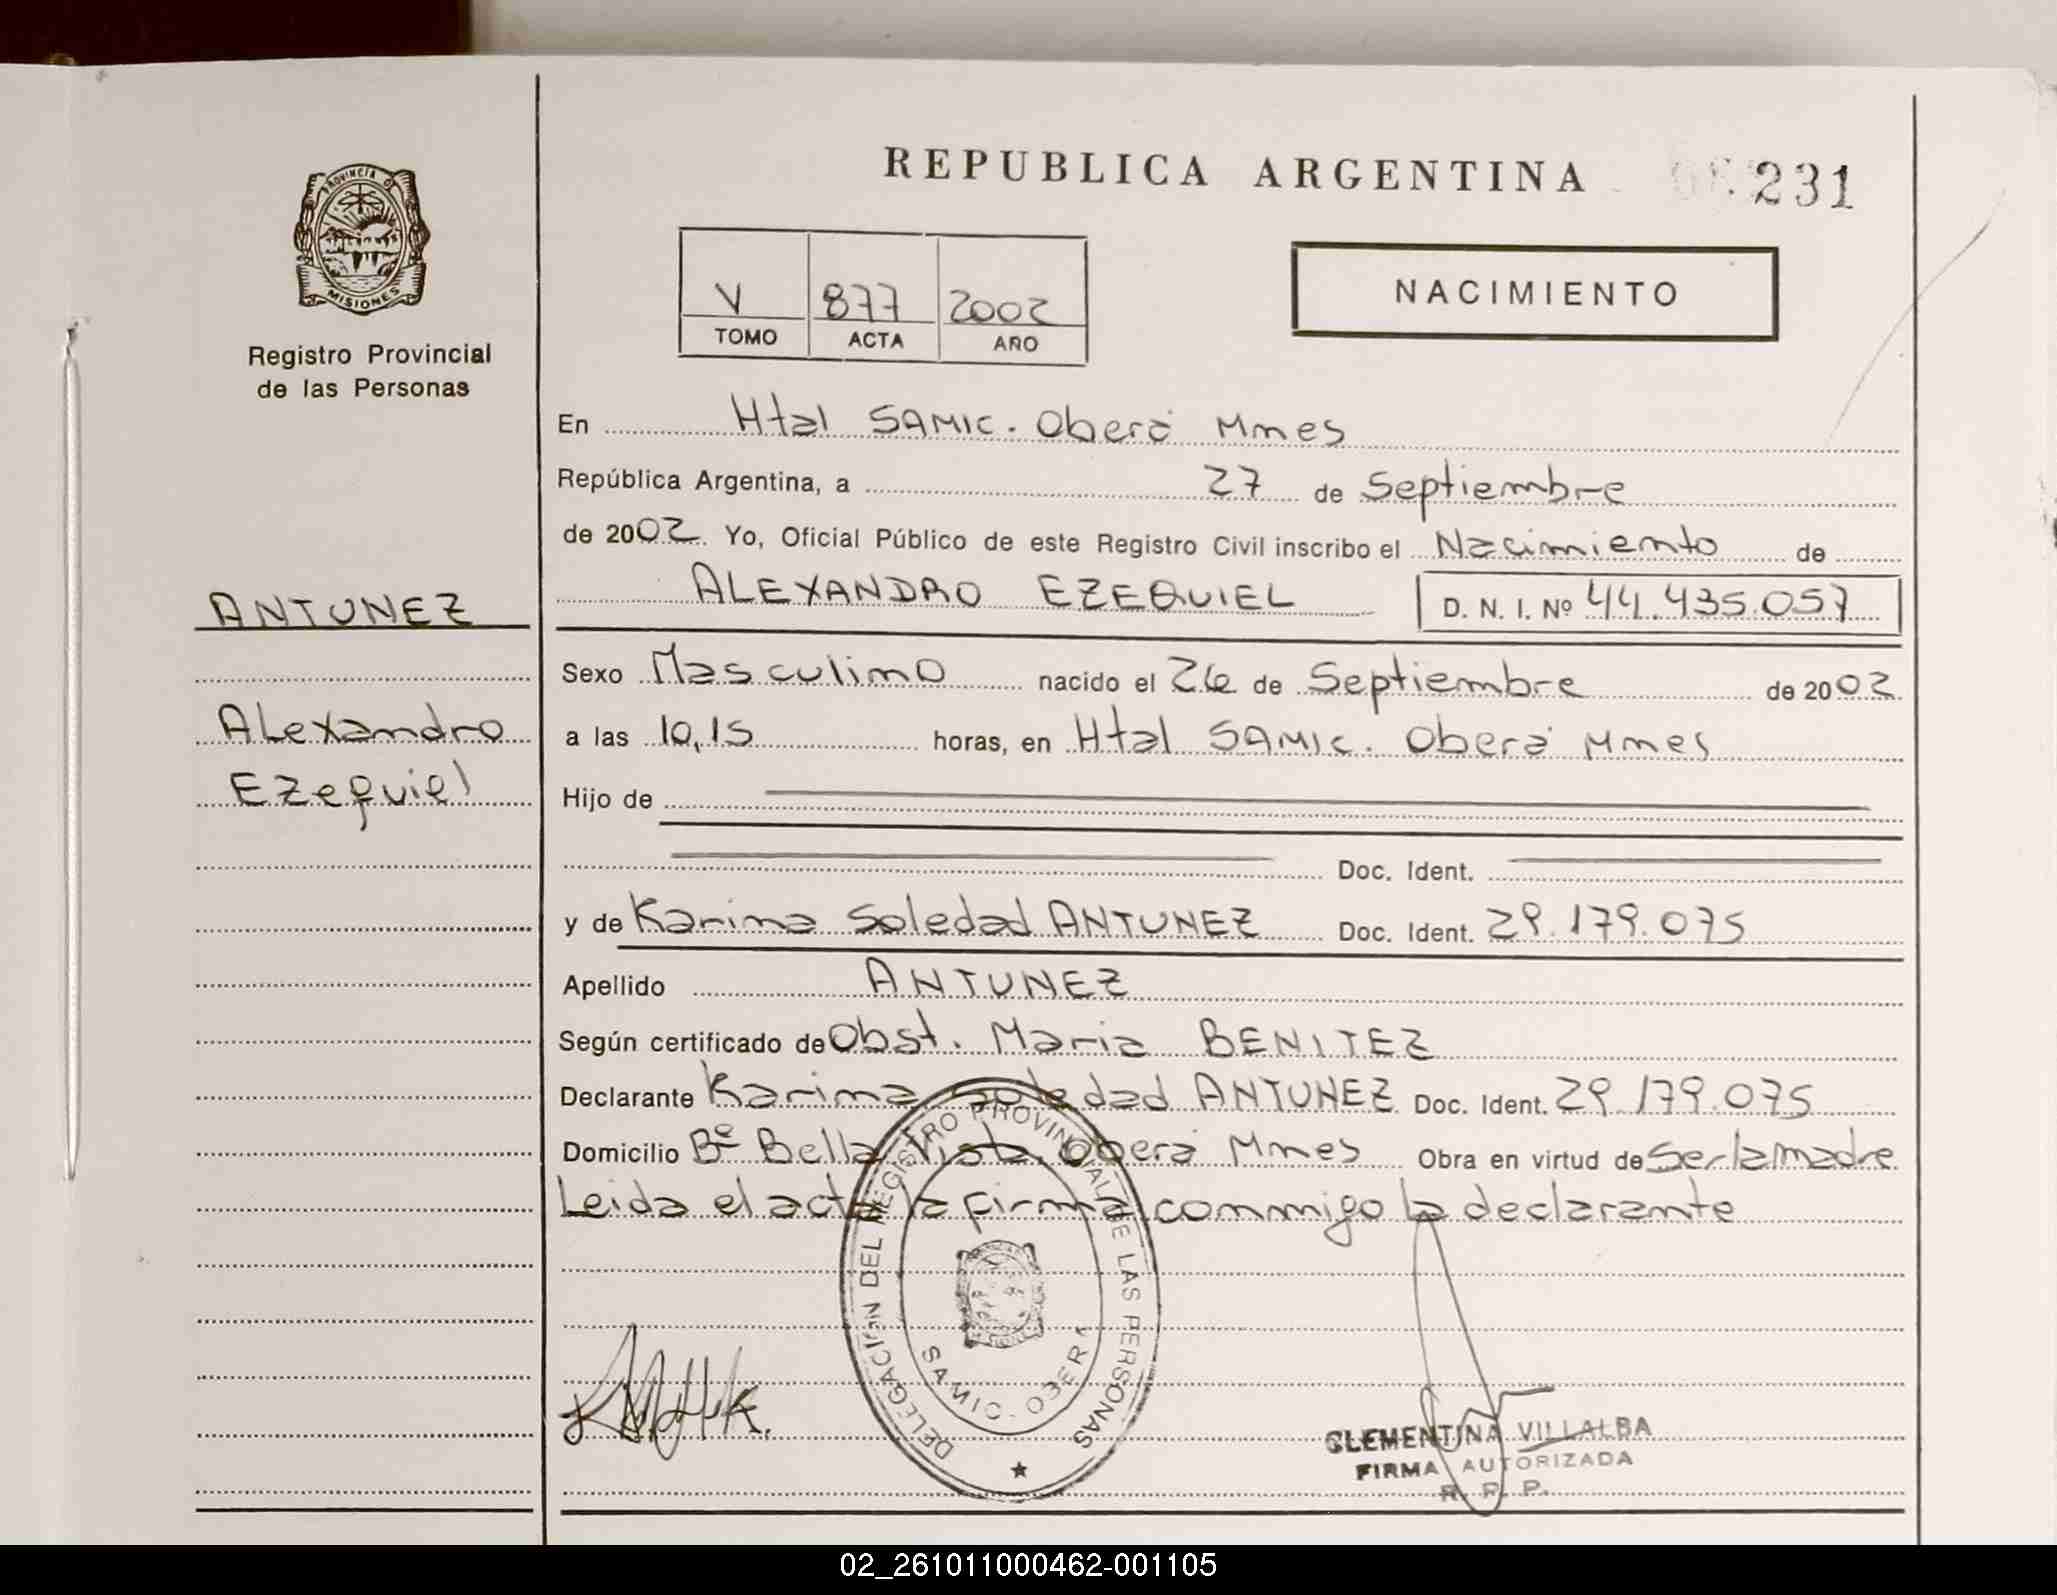 REPUBLICA ARGENTINA 231
PROVINCIA D
MISIONES
Registro Provincial
de las Personas
V 877 2002
TOMO ACTA AÑO
NACIMIENTO
En Htal SAMIC. Oberá Mnes
República Argentina, a 27 de Septiembre
de 2002. Yo, Oficial Público de este Registro Civil inscribo el Nacimiento de
ANTUNEZ
ALEXANDRO EZEQUIEL D. N. I. Nº 44.435.057
Sexo Masculino nacido el 26 de Septiembre de 2002
Alexandro
Ezequiel
a las 10,15 horas, en Htal SAMIC. Oberá Mnes
Hijo de
Doc. Ident.
y de Karina Soledad ANTUNEZ Doc. Ident. 29.179.075
Apellido ANTUNEZ
Según certificado de Obst. Maria BENITEZ
Declarante Karina Soledad ANTUNEZ Doc. Ident. 29.179.075
Domicilio Bº Bella Vista Oberá Mnes Obra en virtud de Ser la madre
Leida el acta la firma conmigo la declarante
DELEGACIÓN DEL REGISTRO PROVINCIAL DE LAS PERSONAS
SAMIC - OBERA
CLEMENTINA VILLALBA
FIRMA AUTORIZADA
R. P. P.
02_261011000462-001105